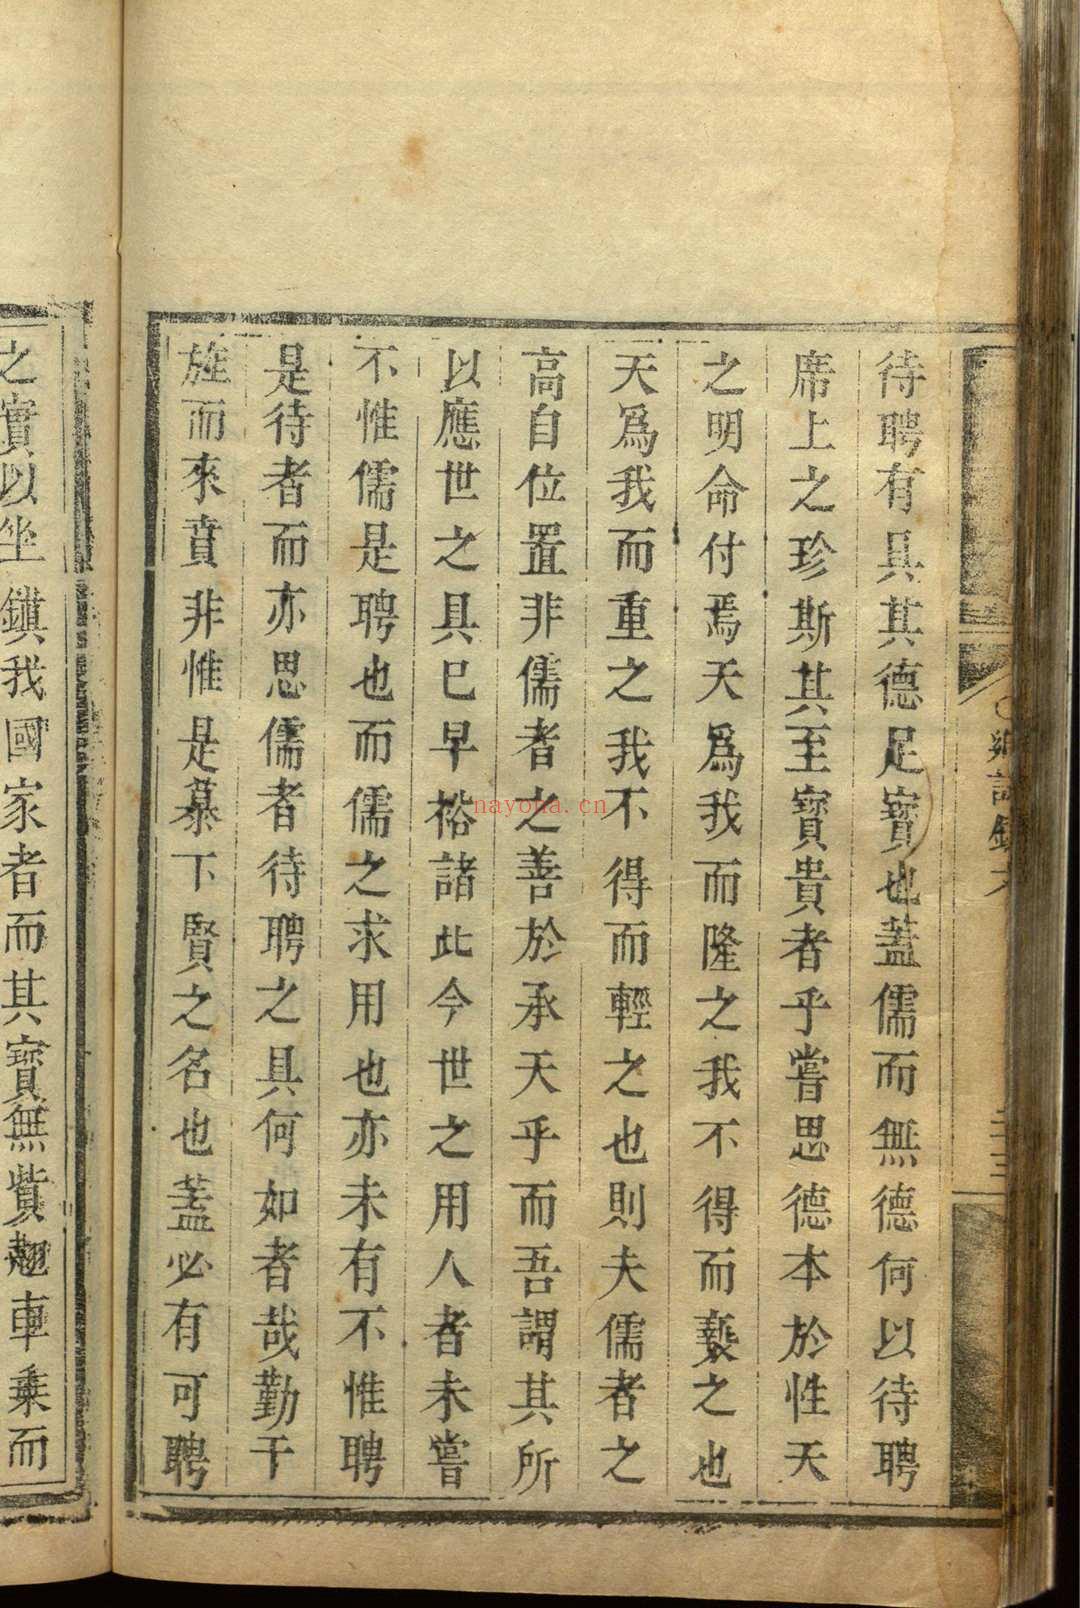 待聘有具其德足寶也蓋儒而無德何以待聘
席上之珍斯其至寶貴者乎嘗思德本於性天
之明命付焉天爲我而隆之我不得而褻之也
天爲我而重之我不得而輕之也則夫儒者之
高自位置非儒者之善於承天乎而吾謂其所
以應世之具已早裕諸此今世之用人者未嘗
不惟儒是聘也而儒之求用也亦未有不惟聘
是待者而亦思儒者待聘之具何如者哉勤干
旌而來賁非惟是慕下賢之名也蓋必有可聘
之實以坐鎮我國家者而其寶無貲翹車乘而
nayona.cn